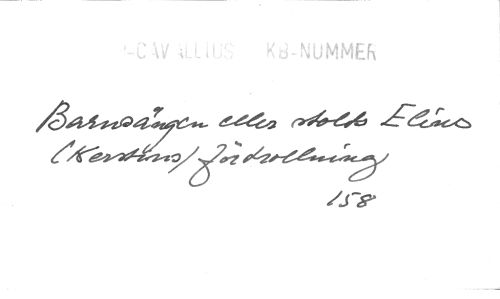 -CAVALLIUS KB-NUMMER
Barnsängen eller stolts Elins
(Kerstins) fördrollning
158